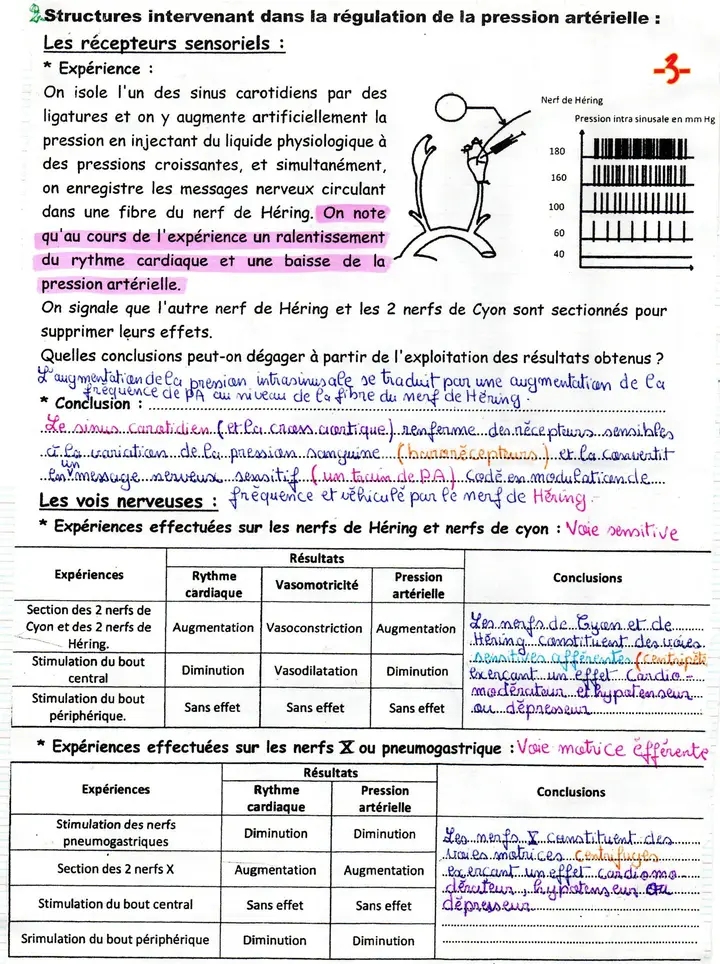 2. Structures intervenant dans la régulation de la pression artérielle :
Les récepteurs sensoriels :
-3-
* Expérience :
On isole l'un des sinus carotidiens par des
ligatures et on y augmente artificiellement la
pression en injectant du liquide physiologique à
des pressions croissantes, et simultanément,
on enregistre les messages nerveux circulant
dans une fibre du nerf de Héring. On note
qu'au cours de l'expérience un ralentissement
du rythme cardiaque et une baisse de la
pression artérielle.
Nerf de Héring
Pression intra sinusale en mm Hg
180
160
100
60
40
On signale que l'autre nerf de Héring et les 2 nerfs de Cyon sont sectionnés pour
supprimer leurs effets.
Quelles conclusions peut-on dégager à partir de l'exploitation des résultats obtenus ?
L'augmentation de la pression intrasinusale se traduit par une augmentation de la
fréquence de PA au niveau de la fibre du nerf de Héring.
* Conclusion :
Le sinus carotidien (et la cross aortique) renferme des récepteurs sensibles
à la variation de la pression sanguine (barorécepteurs) et la convertit
en un message nerveux sensitif (un train de PA) codé en modulation de
fréquence et véhiculé par le nerf de Héring.
Les vois nerveuses :
* Expériences effectuées sur les nerfs de Héring et nerfs de cyon : Voie sensitive
Expériences
Résultats
Conclusions
Rythme cardiaque
Vasomotricité
Pression artérielle
Section des 2 nerfs de
Cyon et des 2 nerfs de
Héring.
Augmentation Vasoconstriction Augmentation
Stimulation du bout
central
Diminution Vasodilatation Diminution
Stimulation du bout
périphérique.
Sans effet Sans effet Sans effet
Les nerfs de Cyon et de
Héring constituent des voies
sensitives afférentes (centripète
exerçant un effet Cardio-
modérateur et hypotenseur
ou dépresseur
* Expériences effectuées sur les nerfs X ou pneumogastrique : Voie motrice efférente
Expériences
Résultats
Conclusions
Rythme cardiaque
Pression artérielle
Stimulation des nerfs
pneumogastriques
Diminution Diminution
Section des 2 nerfs X
Augmentation Augmentation
Stimulation du bout central
Sans effet Sans effet
Srimulation du bout périphérique
Diminution Diminution
Les nerfs X constituent des
voies motrices centrifuges
exerçant un effet cardiomo
dérateur, hypotenseur ou
dépresseur